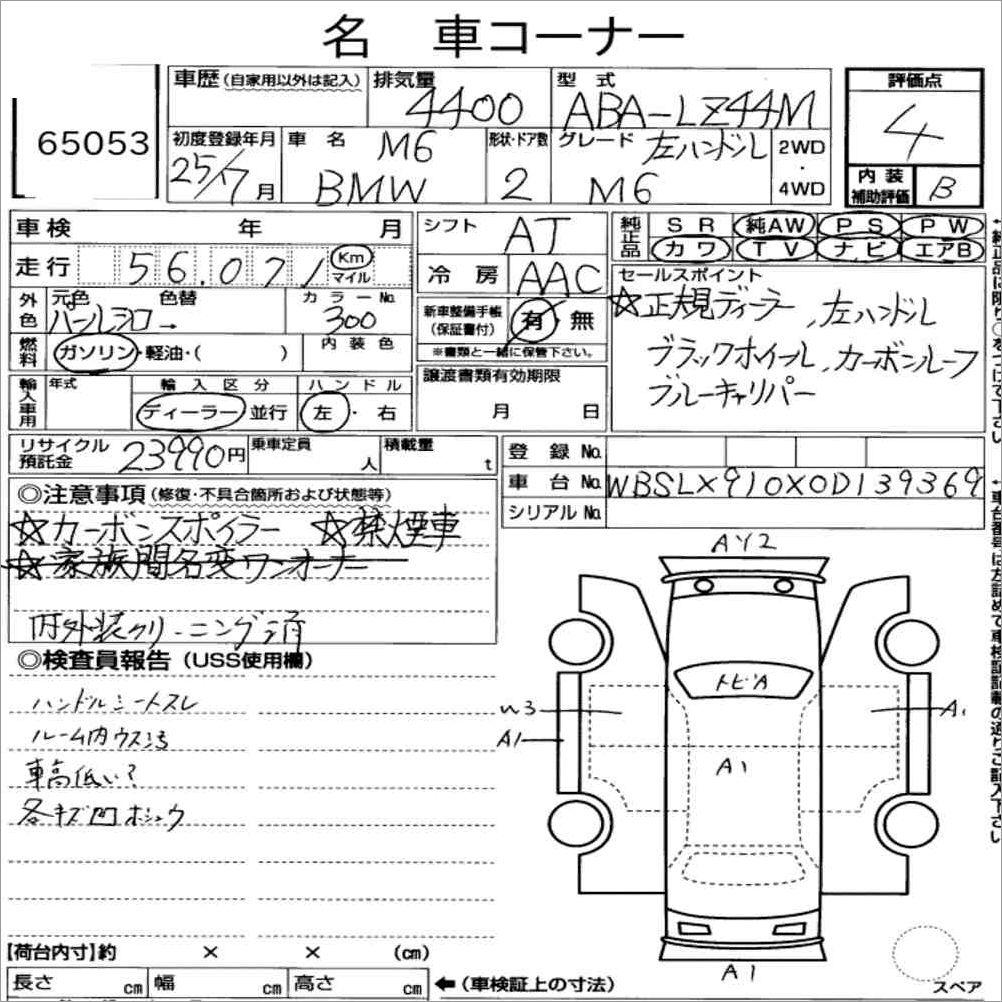 名 車コーナー
65053
車歴(自家用以外は記入) 排気量 4400 型式 ABA-LZ44M
評価点 4
初度登録年月 25/7月 車名 M6 BMW 形状・ドア数 2 グレード 左ハンドル M6 2WD・4WD
内装補助評価 B
車検 年 月
シフト AT
純正品 SR 純AW PS PW
カワ TV ナビ エアB
走行 56.071 Km マイル
冷房 AAC
セールスポイント
☆正規ディーラー, 左ハンドル
ブラックホイール, カーボンルーフ
ブルーキャリパー
外色 元色 パールシロ→ 色替 カラーNo. 300
新車整備手帳(保証書付) 有・無
※書類と一緒に保管下さい。
燃料 ガソリン・軽油・( ) 内装色
譲渡書類有効期限
月 日
輸入車用 年式 輸入区分 ディーラー 並行 ハンドル 左・右
リサイクル預託金 23990円 乗車定員 人 積載量 t
登録No.
車台No. WBSLX910X0D139369
シリアルNo.
◎注意事項(修復・不具合箇所および状態等)
☆カーボンスポイラー ☆禁煙車
☆家族間名変ワンオーナー
内外装クリーニング済
◎検査員報告(USS使用欄)
ハンドルシートスレ
ルーム内ウス汚
車高低い?
各キズ凹ホシュウ
AY2
トビA
W3
A1
A1
A1
A1
スペア
【荷台内寸】約 × × (cm)
長さ cm 幅 cm 高さ cm ←(車検証上の寸法)
←純正品は限り○をつけて下さい
←車台番号は左詰めで車検証記載の通りご記入下さい